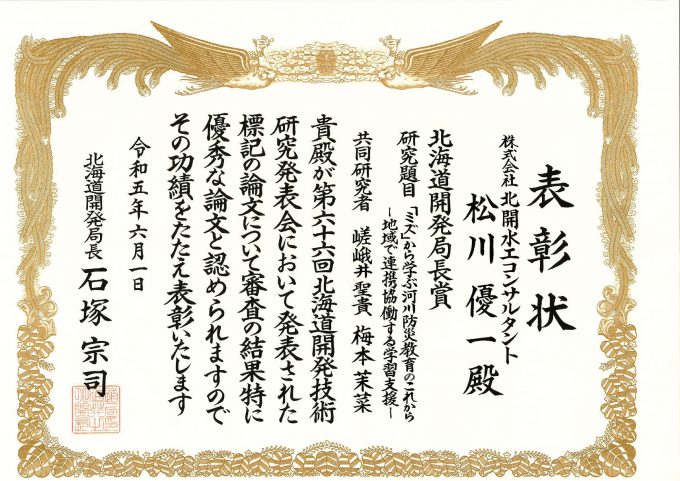 表彰状
株式会社 北開水工コンサルタント
松川優一殿
北海道開発局長賞
研究題目 「ミズ」から学ぶ河川防災教育のこれから
－地域で連携協働する学習支援－
共同研究者 嵯峨井聖貴 梅本茉菜
貴殿が第六十六回北海道開発技術
研究発表会において発表された
標記の論文について審査の結果特に
優秀な論文と認められますので
その功績をたたえ表彰いたします
令和五年六月一日
北海道開発局長 石塚宗司